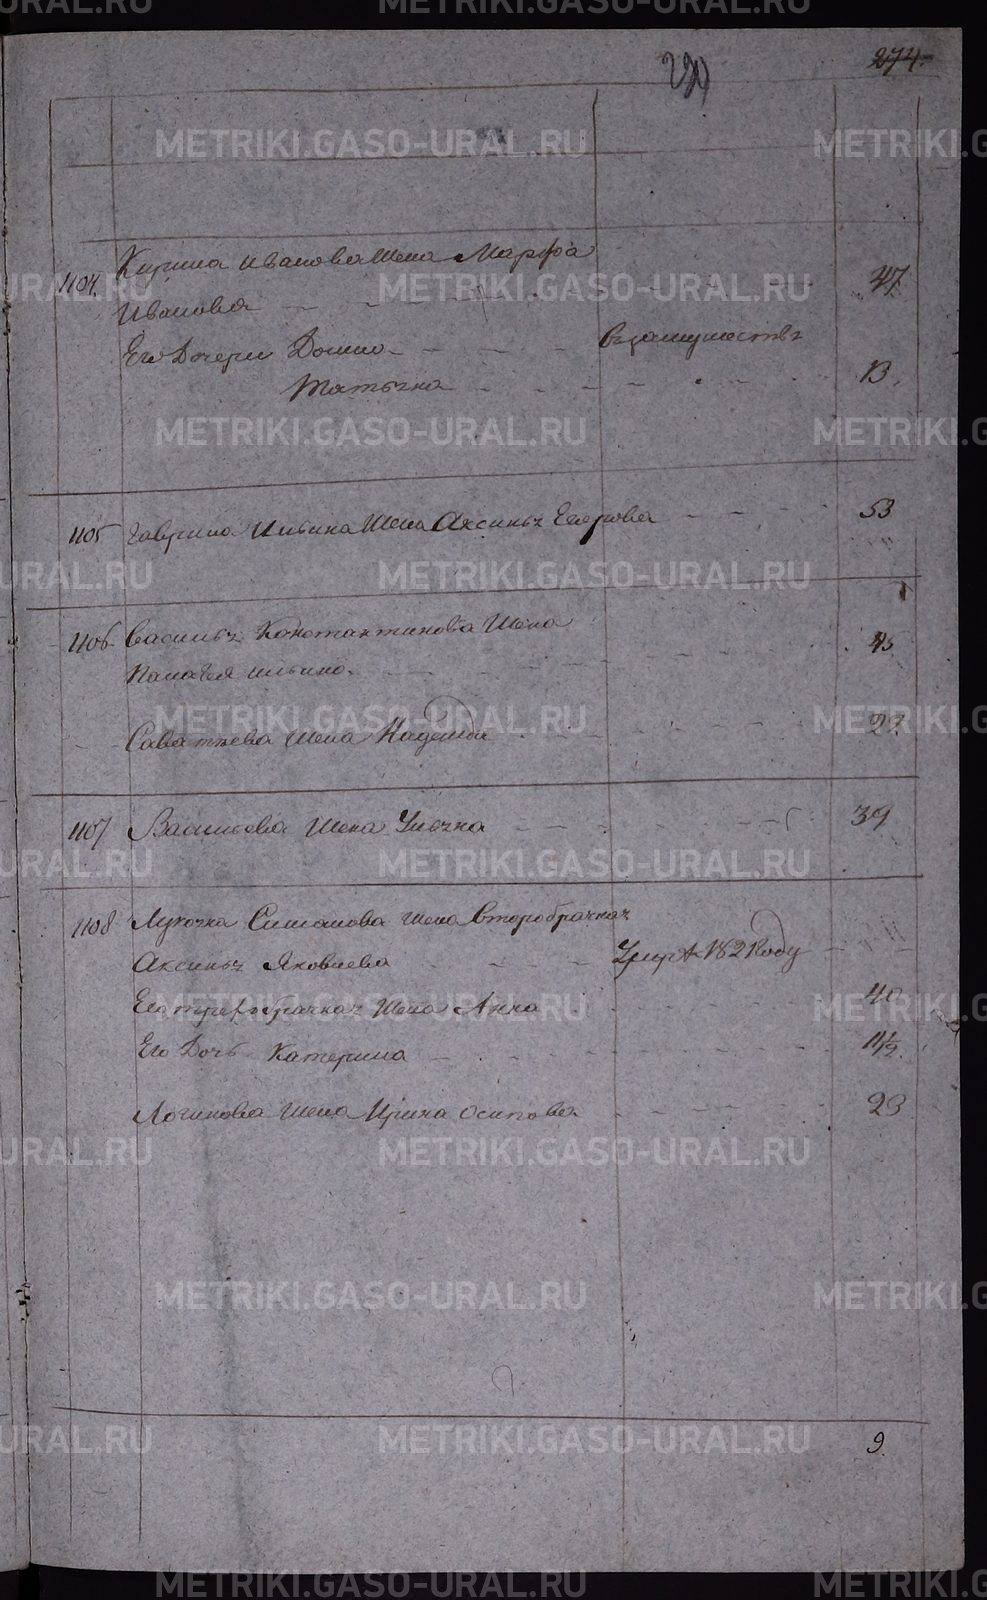 274.
1104. Кирила Иванова Жена Марфа
Иванова 47
Его Дочери Домна в замужестве
Татьяна 13.
1105 Гаврила Ильина Жена Аксинья Егорова 53
1106 Василья Константинова Жена
Палагея Ильина. 45
Саватеева Жена Надежда 23.
1107 Васильева Жена Ульяна 39
1108 Симанова Жена второбрачная
Аксинья Яковлева Умер. в 1821 году
Его треть брачная Жена Анна 40
Его Дочь Катерина 11/2.
Логинова Жена Ирина Осипова 23
9.
METRIKI.GASO-URAL.RU